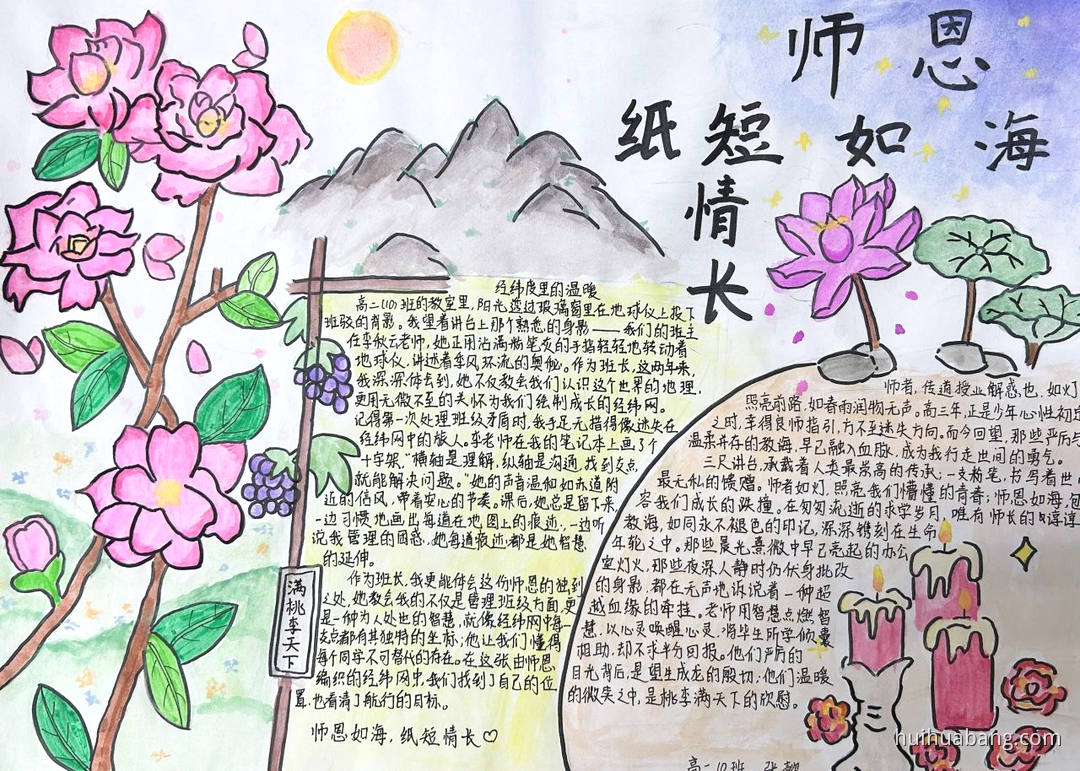 师恩如海
纸短情长
经纬度里的温暖
高二(10)班的教室里,阳光透过玻璃窗在地球仪上投下
班驳的背影。我望着讲台上那个熟悉的身影——我们的班主
任李秋云老师,她正用沾满粉笔灰的手指轻轻地转动着
地球仪,讲述着季风环流的奥秘。作为班长,这两年来,
我深深体会到,她不仅教会我们认识这个世界的地理,
更用无微不至的关怀为我们绘制成长的经纬网。
记得第一次处理班级矛盾时,我手足无措得像迷失在
经纬网中的旅人。李老师在我的笔记本上画了个
十字架,"横轴是理解,纵轴是沟通,找到交点,
就能解决问题。"她的声音温和如赤道附
近的信风,带着安心的节奏。课后,她总是留下来,
一边习惯地画出每道在地图上的痕迹,一边听
说我管理的困惑,她每道痕迹都是她智慧
的延伸。
作为班长,我更能体会这份师恩的独到
之处,她教会我的不仅是管理班级方面,更
是一种为人处世的智慧,就像经纬网中每一
支点都有其独特的坐标;他让我们懂得
每个同学不可替代的存在。在这张由师恩
编织的经纬网中,我们找到了自己的位
置,也看清了航行的目标。
师恩如海,纸短情长♡
满桃李天下
师者,传道授业解惑也,如灯
照亮前路,如春雨润物无声。高三年,正是少年心性初
之时,幸得良师指引,方不至迷失方向。而今回望,那些严厉与
温柔并存的教诲,早已融入血脉,成为我行走世间的勇气。
三尺讲台,承载着人类最崇高的传承;一支粉笔,书写着世
最无私的馈赠。师者如灯,照亮我们懵懂的青春;师恩如海,包
容我们成长的跌撞。在匆匆流逝的求学岁月,唯有师长的谆谆
教诲,如同永不褪色的印记,深深镌刻在生命
年轮之中。那些晨光熹微中早已亮起的办公
室灯火,那些夜深人静时仍伏身批改
的身影,都在无声地诉说着一种超
越血缘的牵挂。老师用智慧点燃智
慧,以心灵唤醒心灵,将毕生所学倾囊
相助,却不求半分回报。他们严厉的
目光背后,是望生成龙的殷切;他们温暖
的微笑之中,是桃李满天下的欣慰。
高二10班
huihuabang.com